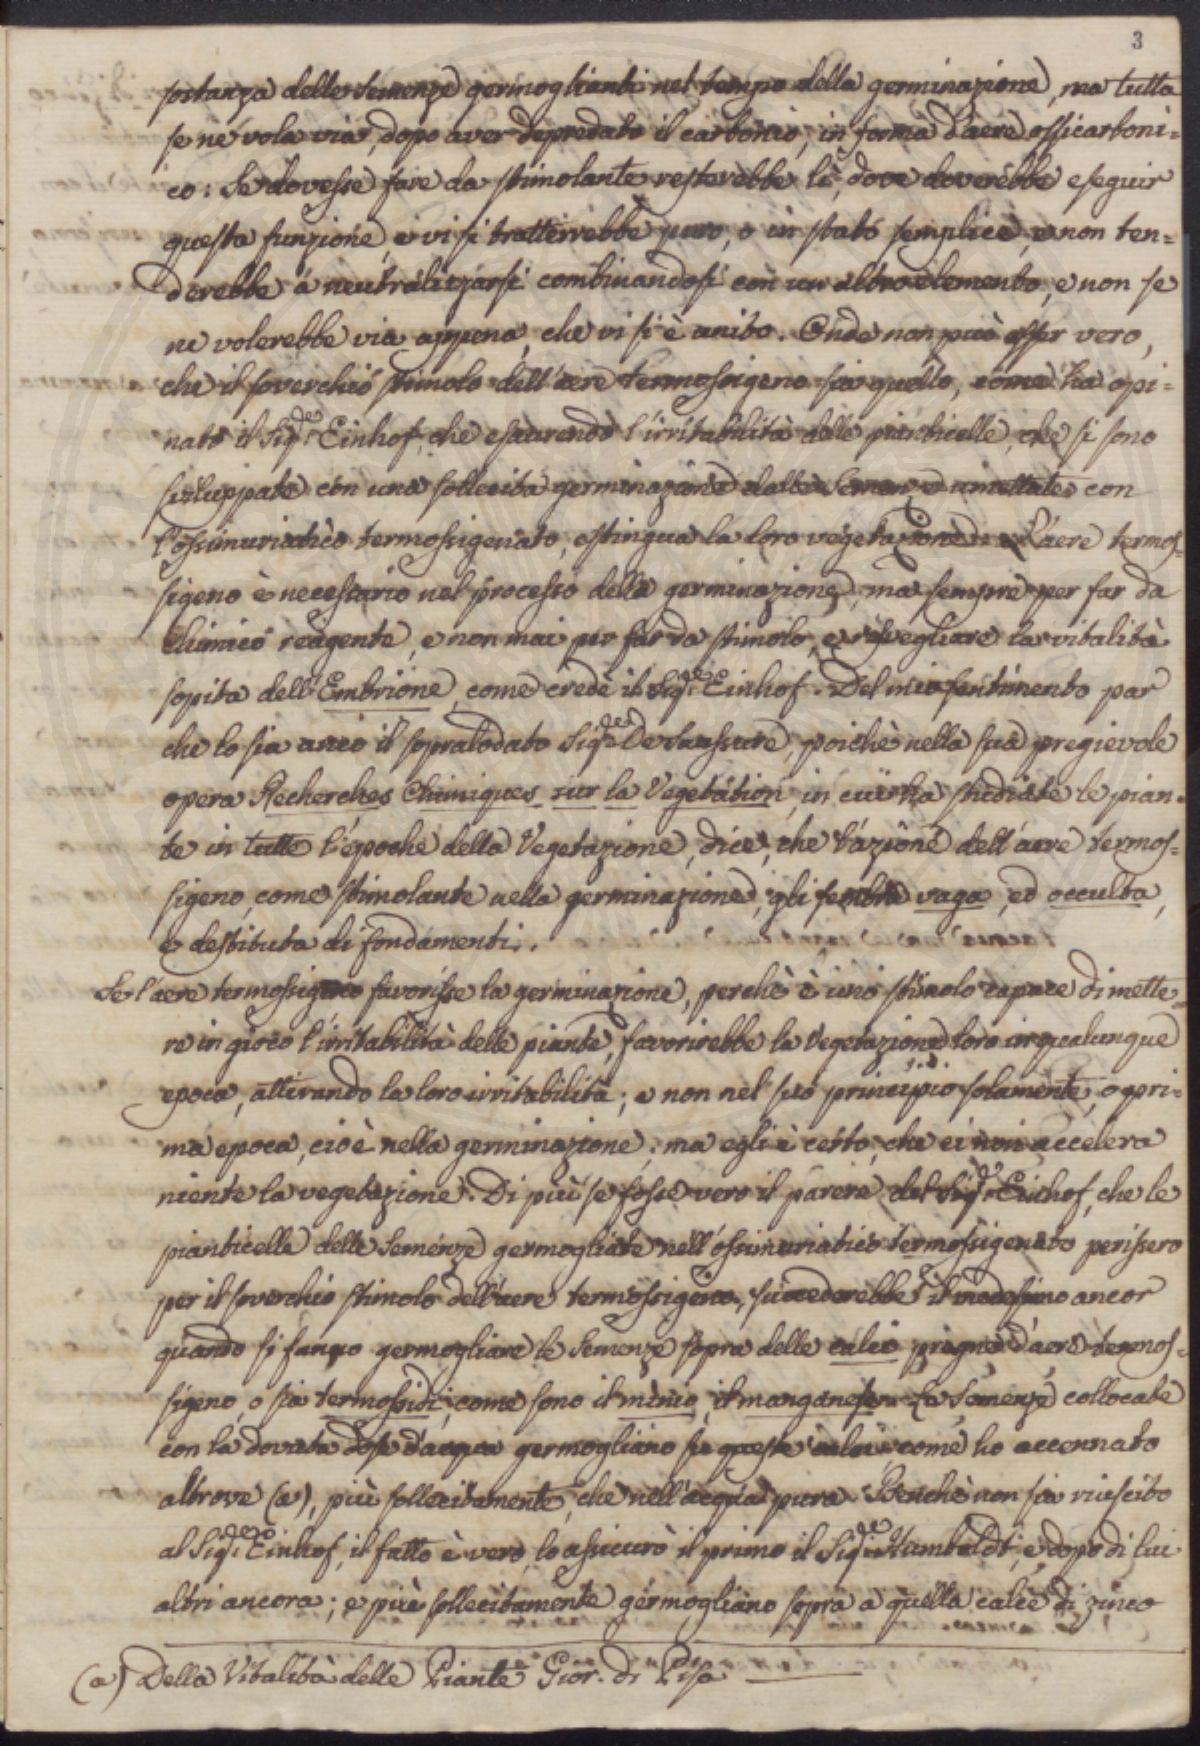 3
sostanza delle semenze germoglianti nel tempo della germinazione, ma tutta
se ne vola via, dopo aver depredato il carbonio, in forma d'aere ossicarboni=
co: Se dovesse fare da stimolante resterebbe lì, dove doverebbe eseguir
questa funzione, e vi si tratterrebbe puro, o in stato semplice, e non ten=
derebbe a neutralizzarsi combinandosi con un altro elemento, e non se
ne volerebbe via appena, che vi si è unito. Onde non può esser vero,
che il soverchio stimolo dell'aere termossigeno sia quello, come ha opi=
nato il Sig.de Einhof, che esaurendo l'irritabilità delle pianticelle, che si sono
sviluppate con una sollecita germinazione dalle Semenze umettate con
l'ossimuriatico termossigenato, estingua la loro vegetazione. L'aere termos=
sigeno è necessario nel processo della germinazione, ma sempre per far da
chimico reagente, e non mai per far da stimolo, e risvegliare la vitalità
sopita dell'Embrione, come crede il Sig.de Einhof. Del mio sentimento par
che lo sia anco il sopralodato Sig.de De Saussure, poichè nella sua pregievole
opera Recherches Chimiques sur la Vegetation, in cui ha studiate le pian=
te in tutte l'epoche della Vegetazione, dice, che l'azione dell'aere termos=
sigeno, come stimolante nella germinazione, gli sembra vaga, ed occulta,
e destituta di fondamenti.
Se l'aere termossigeno favorisse la germinazione, perchè è uno stimolo capace di mette=
re in gioco l'irritabilità delle piante, favorirebbe la Vegetazione loro in qualunque
epoca, attivando la loro irritabilità; e non nel suo principio solamente, o pri=
ma epoca, cioè nella germinazione; ma egli è certo, che ei non accelera
niente la vegetazione. Di più se fosse vero il parere del Sig.de Einhof, che le
pianticelle delle Semenze germogliate nell'ossimuriatico termossigenato perissero
per il soverchio stimolo dell'aere termossigeno, succederebbe il medesimo ancor
quando si fanno germogliare le Semenze sopra delle calci pregne d'aere termos=
sigeno, o sia termossidi, come sono il minio, il manganese. Le Semenze collocate
con la dovuta dose d'acqua germogliano su queste calci, come ho accennato
altrove (a), più sollecitamente, che nell'acqua pura. Benchè non sia riuscito
al Sig.de Einhof, il fatto è vero, lo assicurò il primo il Sig.de Humboldt, e dopo di lui
altri ancora; e più sollecitamente germogliano sopra a quella calce di zinco
(a) Della Vitalità delle Piante Gior. di Pisa